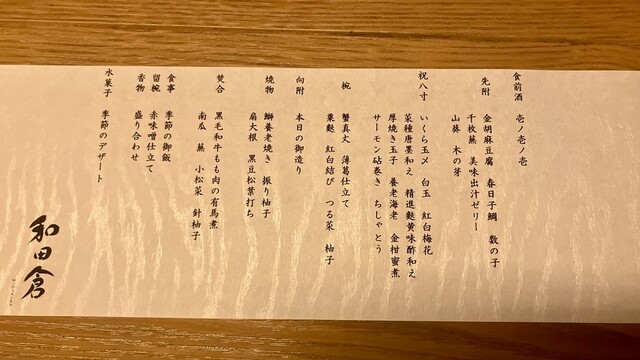 食前酒 壱ノ壱ノ壱
先附 金胡麻豆腐 春日子鯛 数の子
千枚蕪 美味出汁ゼリー
山葵 木の芽
祝八寸 いくら玉〆 白玉 紅白梅花
菜種唐墨和え 精進麩黄味酢和え
厚焼き玉子 養老海老 金柑蜜煮
サーモン砧巻き ちしゃとう
椀 蟹真丈 薄葛仕立て
粟麩 紅白結び つる菜 柚子
向附 本日の御造り
焼物 鰤養老焼き 振り柚子
扇大根 黒豆松葉打ち
焚合 黒毛和牛もも肉の有馬煮
南瓜 蕪 小松菜 針柚子
食事 季節の御飯
留椀 赤味噌仕立て
香物 盛り合わせ
水菓子 季節のデザート
和田倉